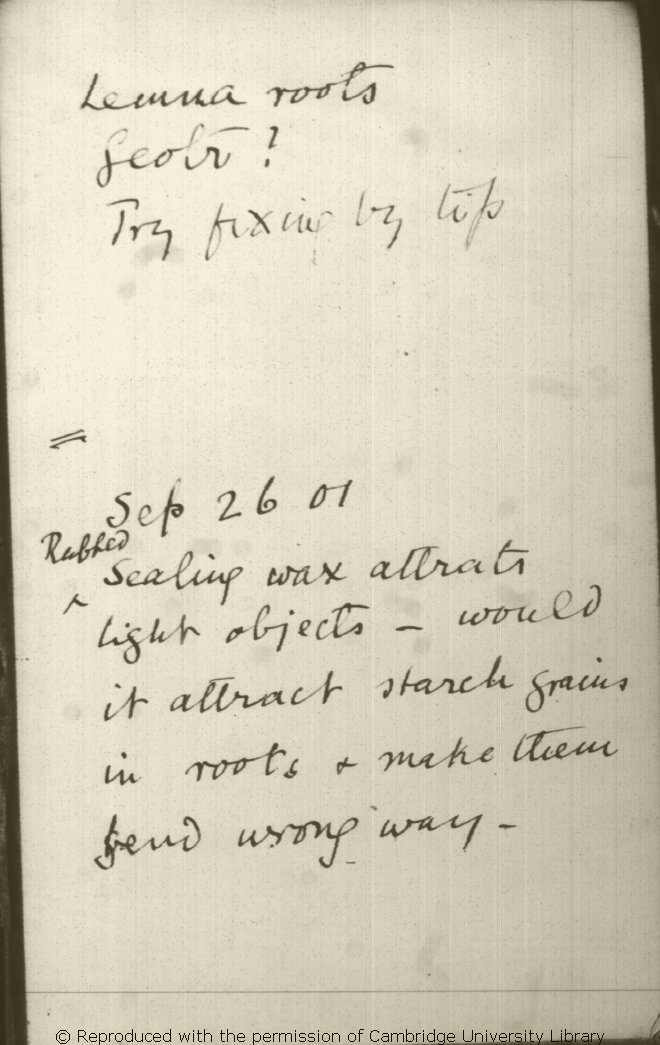 Lemna roots
Geotr?
Try fixing by tips
=
Sep 26 01
Rubbed
^ Sealing wax attrats
light objects – would
it attract starch grains
in roots & make them
bend wrong way –
© Reproduced with the permission of Cambridge University Library